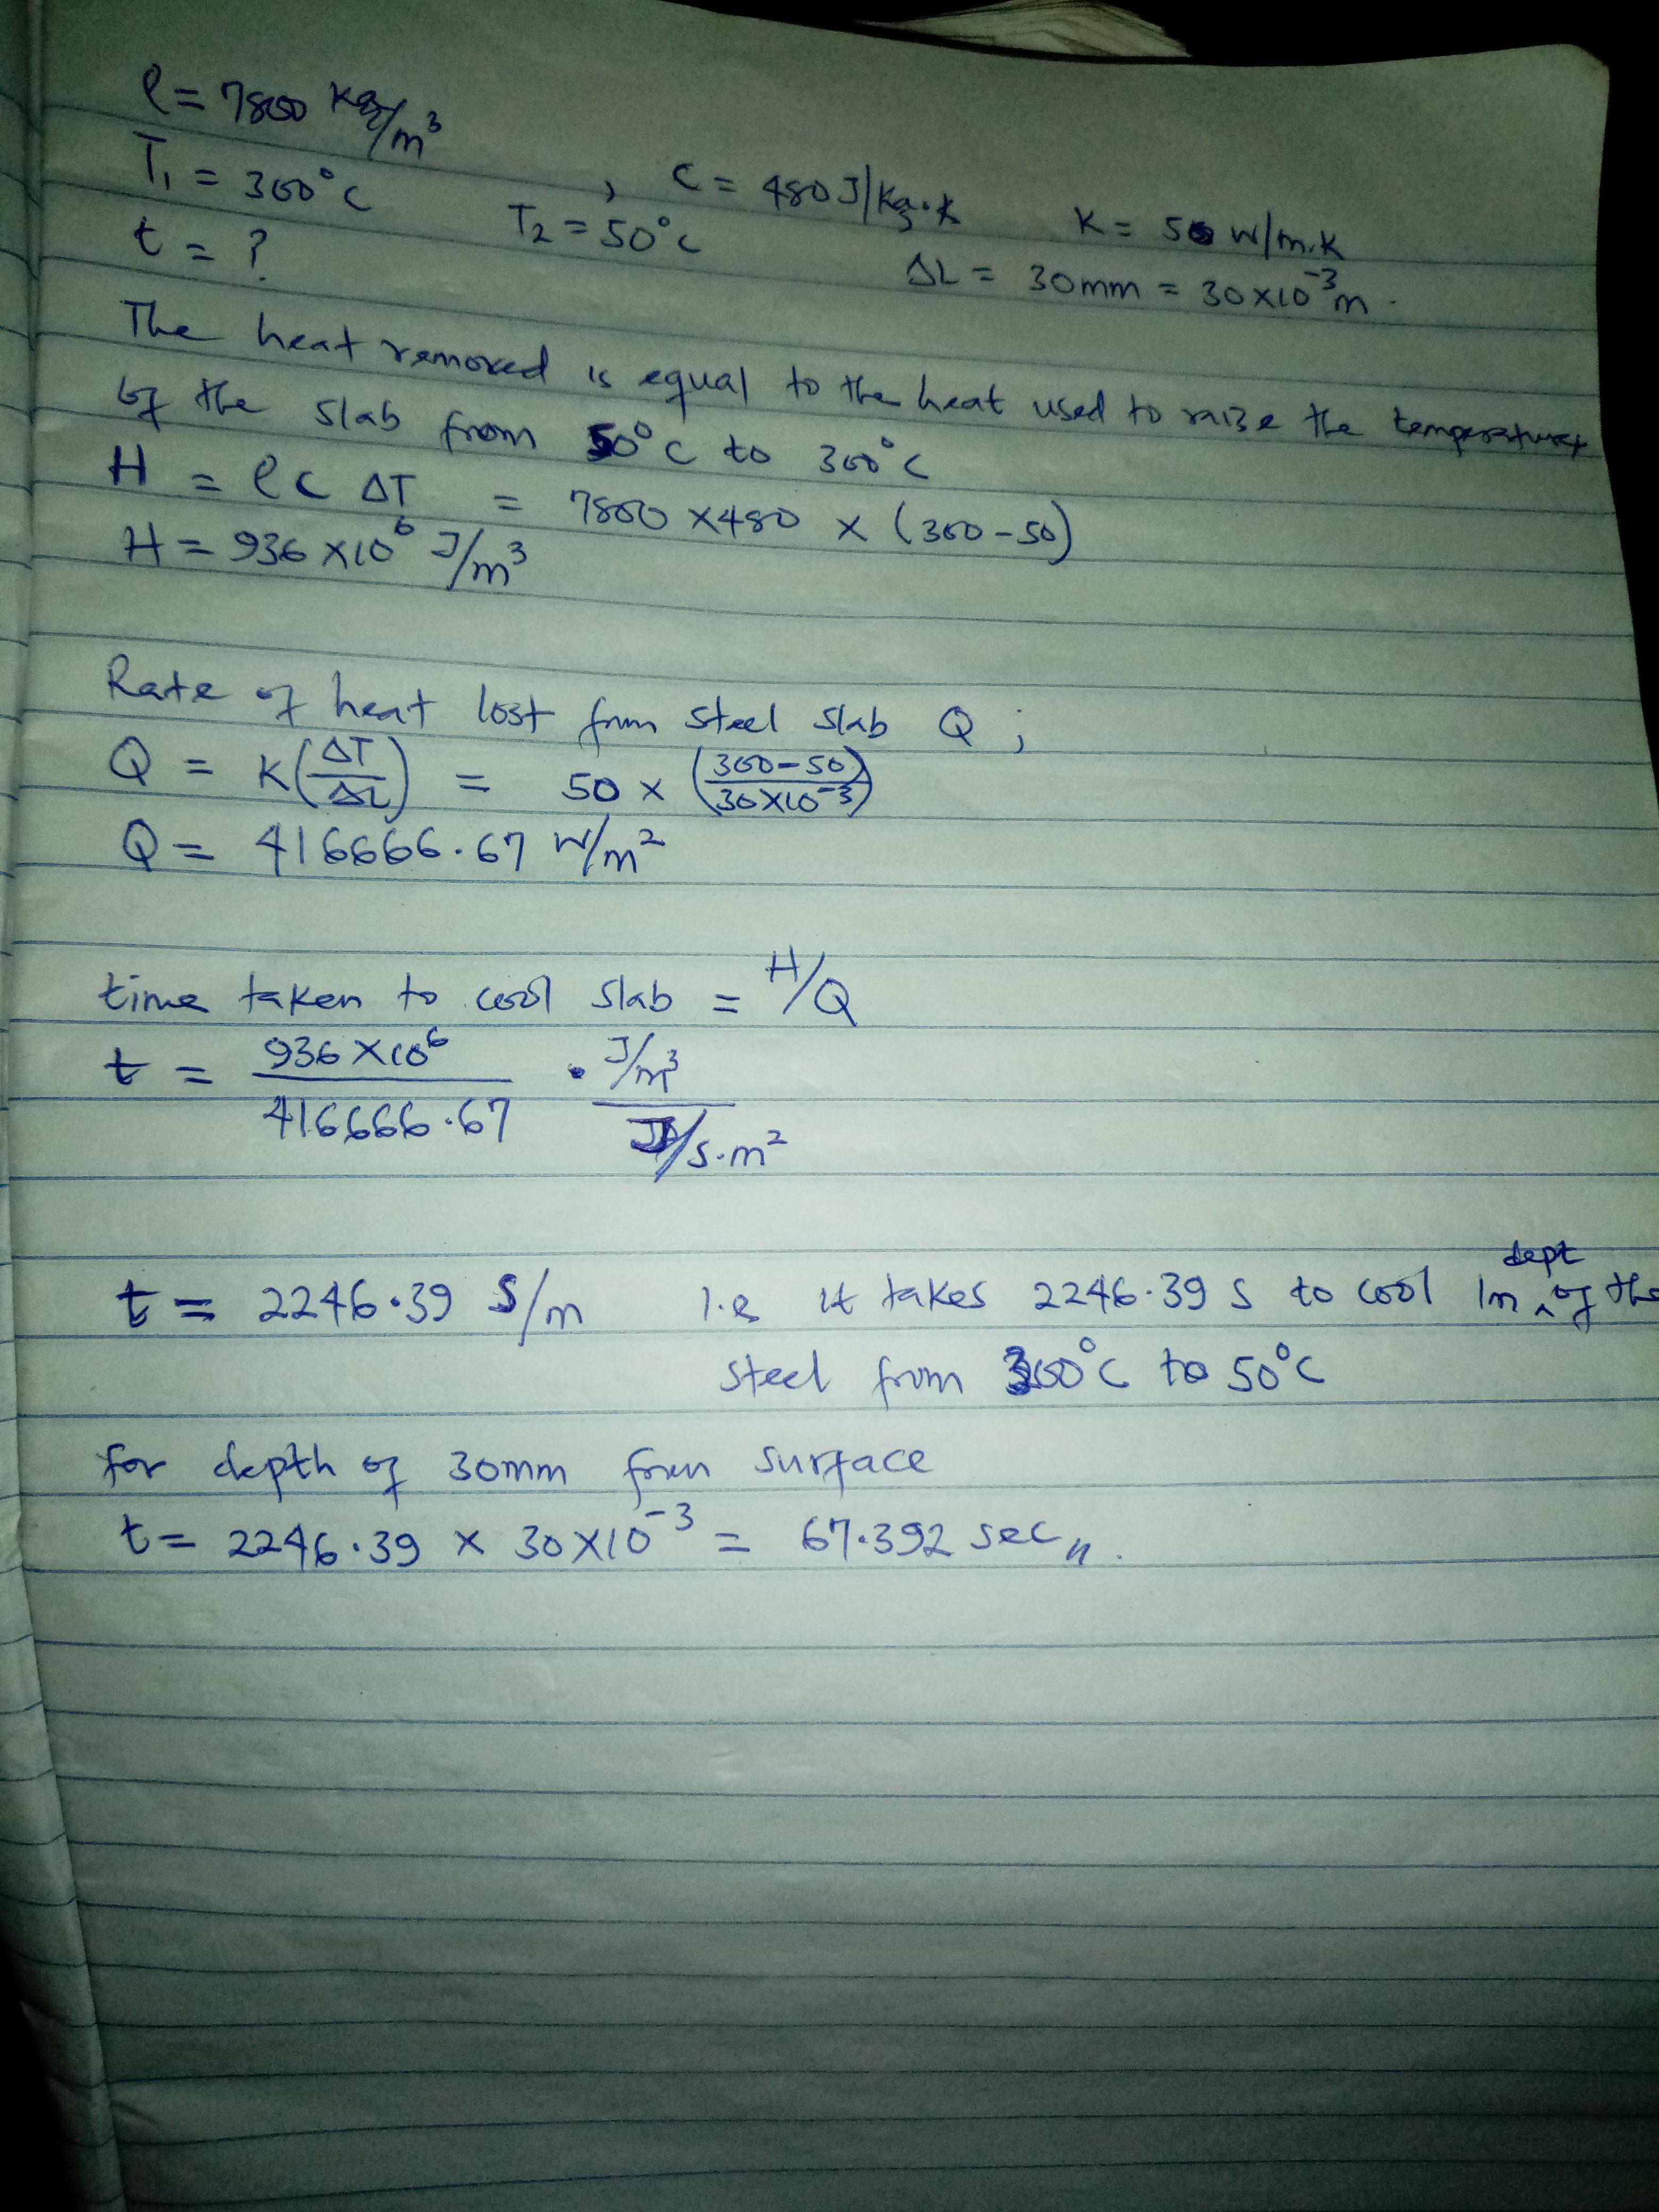 ρ = 7800 Kg/m³
T₁ = 300°C , C = 480 J/Kg.K K = 50 W/m.K
t = ? T₂ = 50°C ΔL = 30mm = 30×10⁻³m.
The heat removed is equal to the heat used to raise the temperature
of the slab from 50°C to 300°C
H = ρ C ΔT = 7800 × 480 × (300 - 50)
H = 936 × 10⁶ J/m³
Rate of heat lost from steel slab Q ;
Q = K(ΔT/ΔL) = 50 × (300-50/30×10⁻³)
Q = 416666.67 W/m²
time taken to cool slab = H/Q
t = 936 × 10⁶/416666.67 . J/m³/J/s.m²
dept
t = 2246.39 S/m I.e it takes 2246.39 S to cool 1m ^ of the
steel from 300°C to 50°C
for depth of 30mm from surface
t = 2246.39 × 30×10⁻³ = 67.392 sec,,.